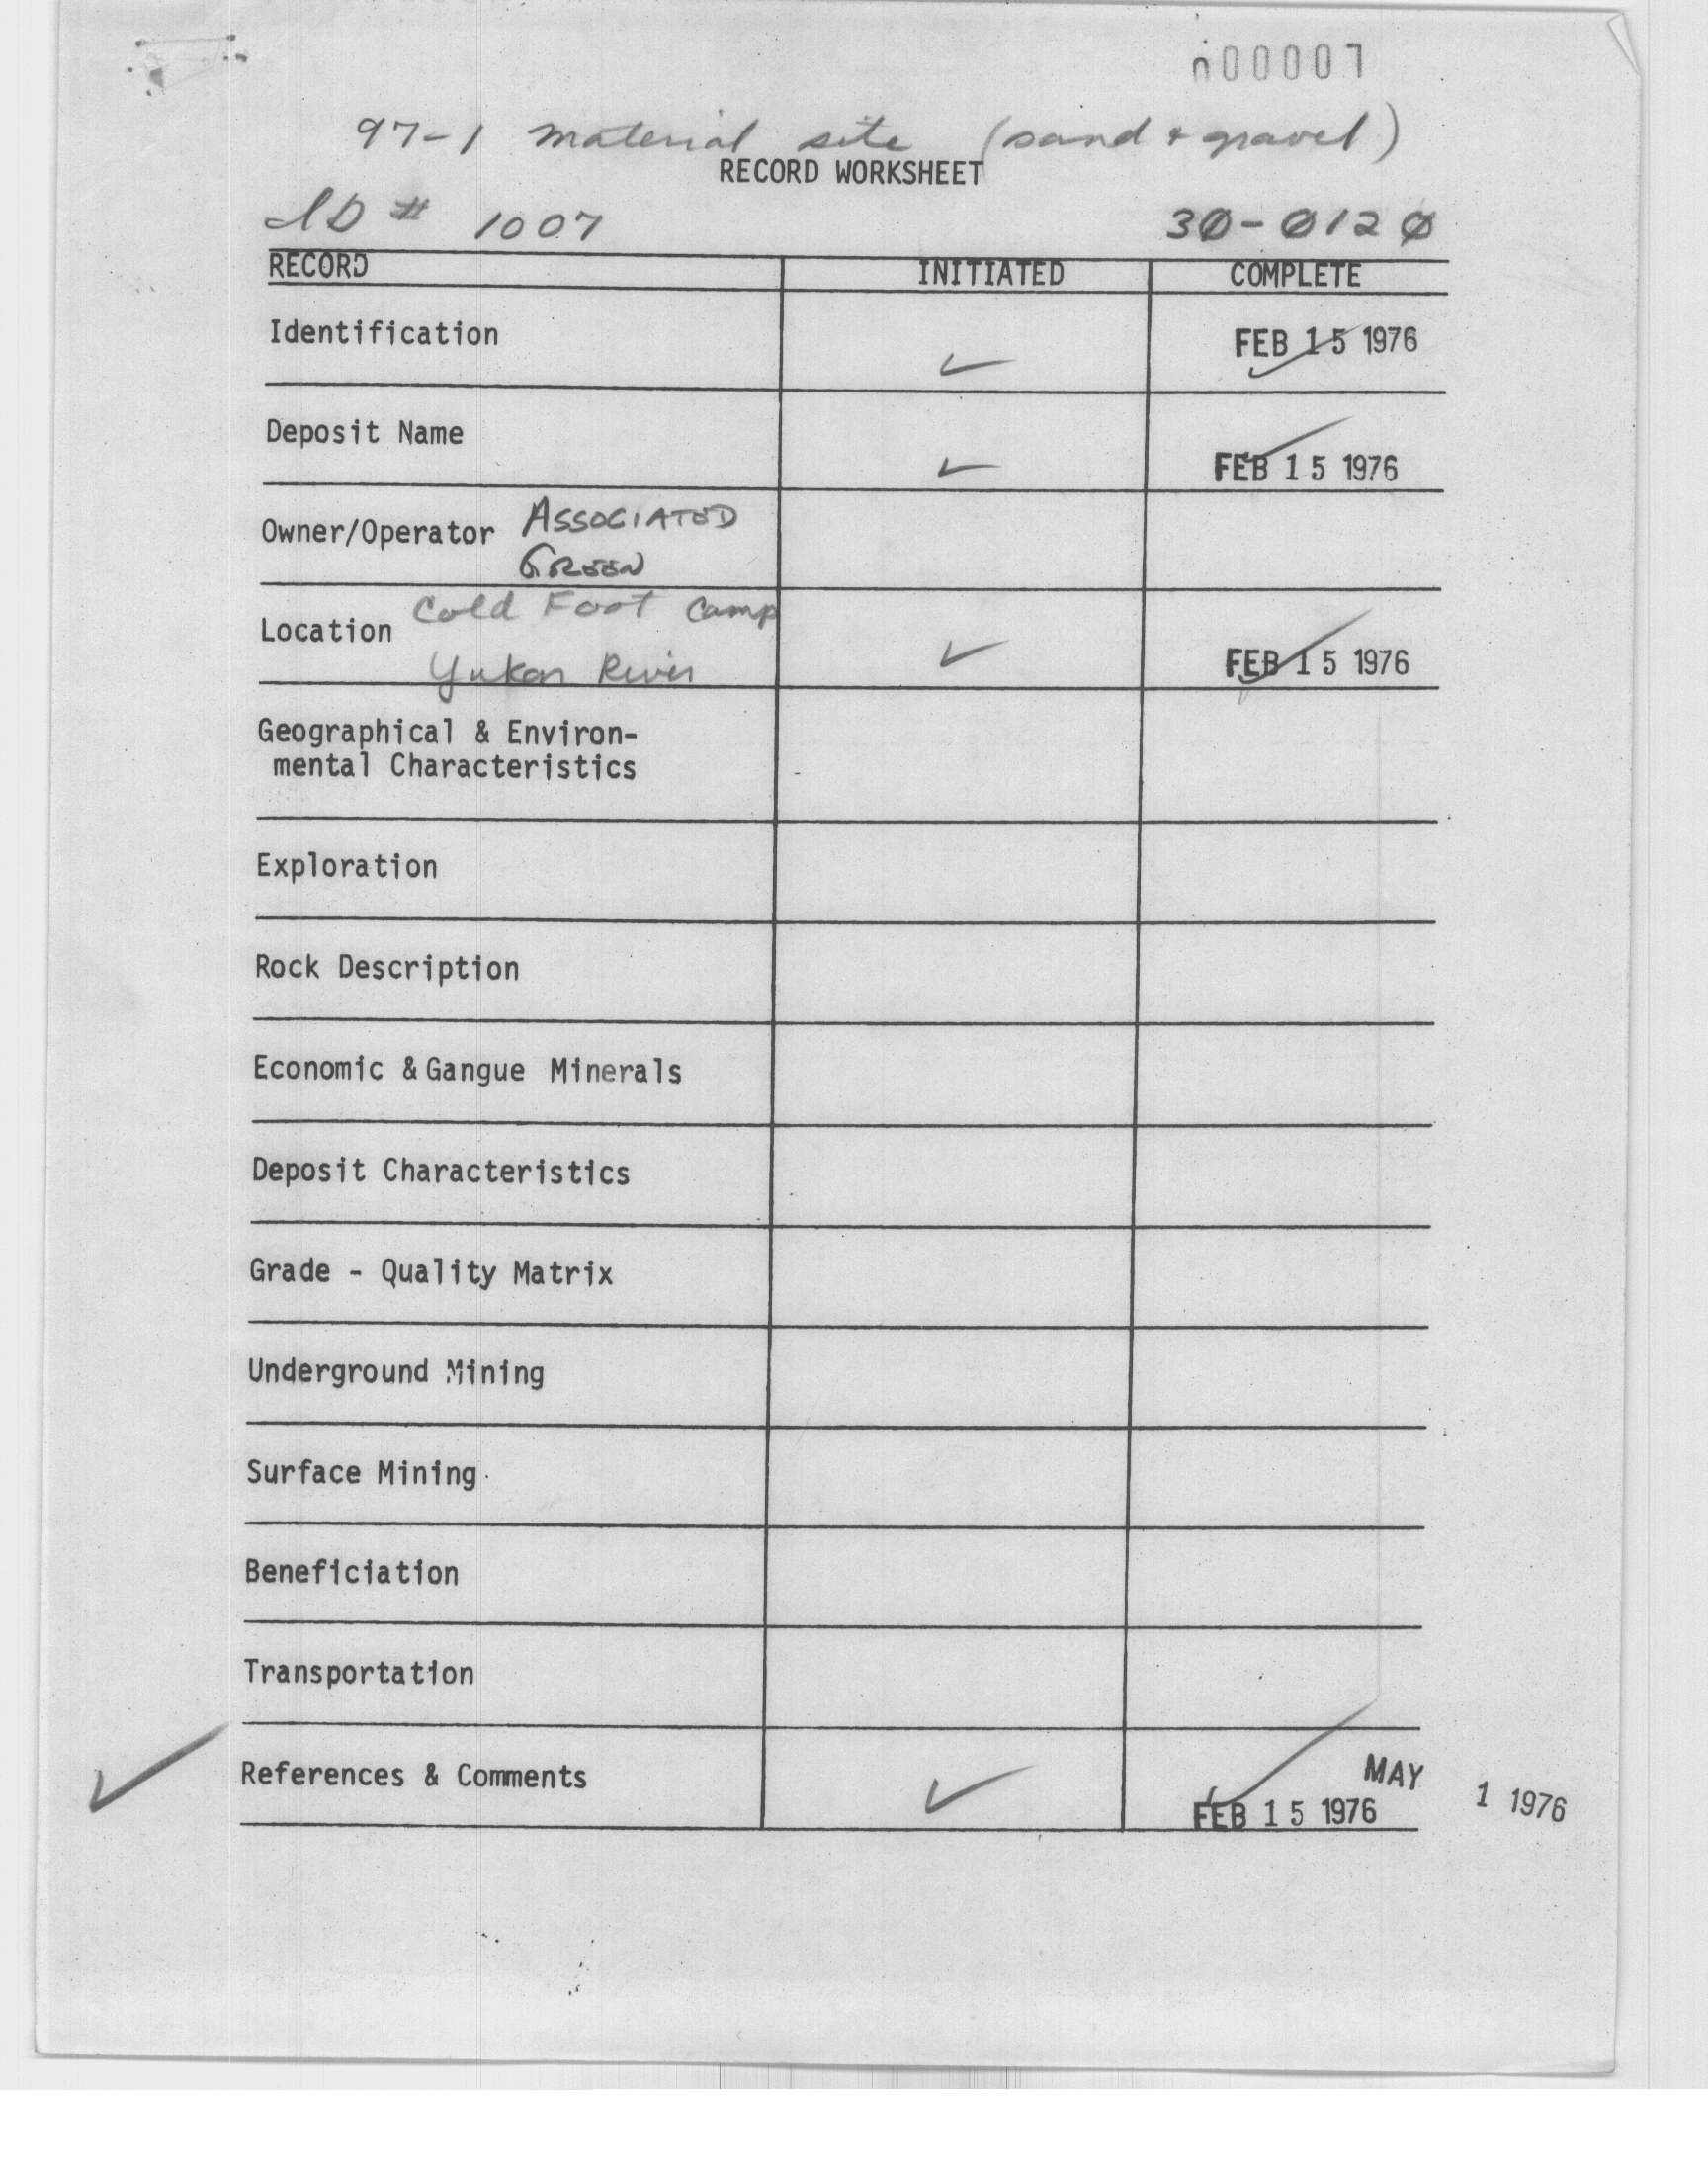 000007
97-1 material site (sand + gravel)
RECORD WORKSHEET
ID # 1007 30-0120
RECORD INITIATED COMPLETE
Identification ✓ FEB 15 1976
Deposit Name ✓ FEB 15 1976
Owner/Operator ASSOCIATED
GREEN
Cold Foot Camp
Location ✓ FEB 15 1976
Yukon River
Geographical & Environ-
mental Characteristics
Exploration
Rock Description
Economic & Gangue Minerals
Deposit Characteristics
Grade - Quality Matrix
Underground Mining
Surface Mining
Beneficiation
Transportation
✓ References & Comments ✓ FEB 15 1976 MAY 1 1976